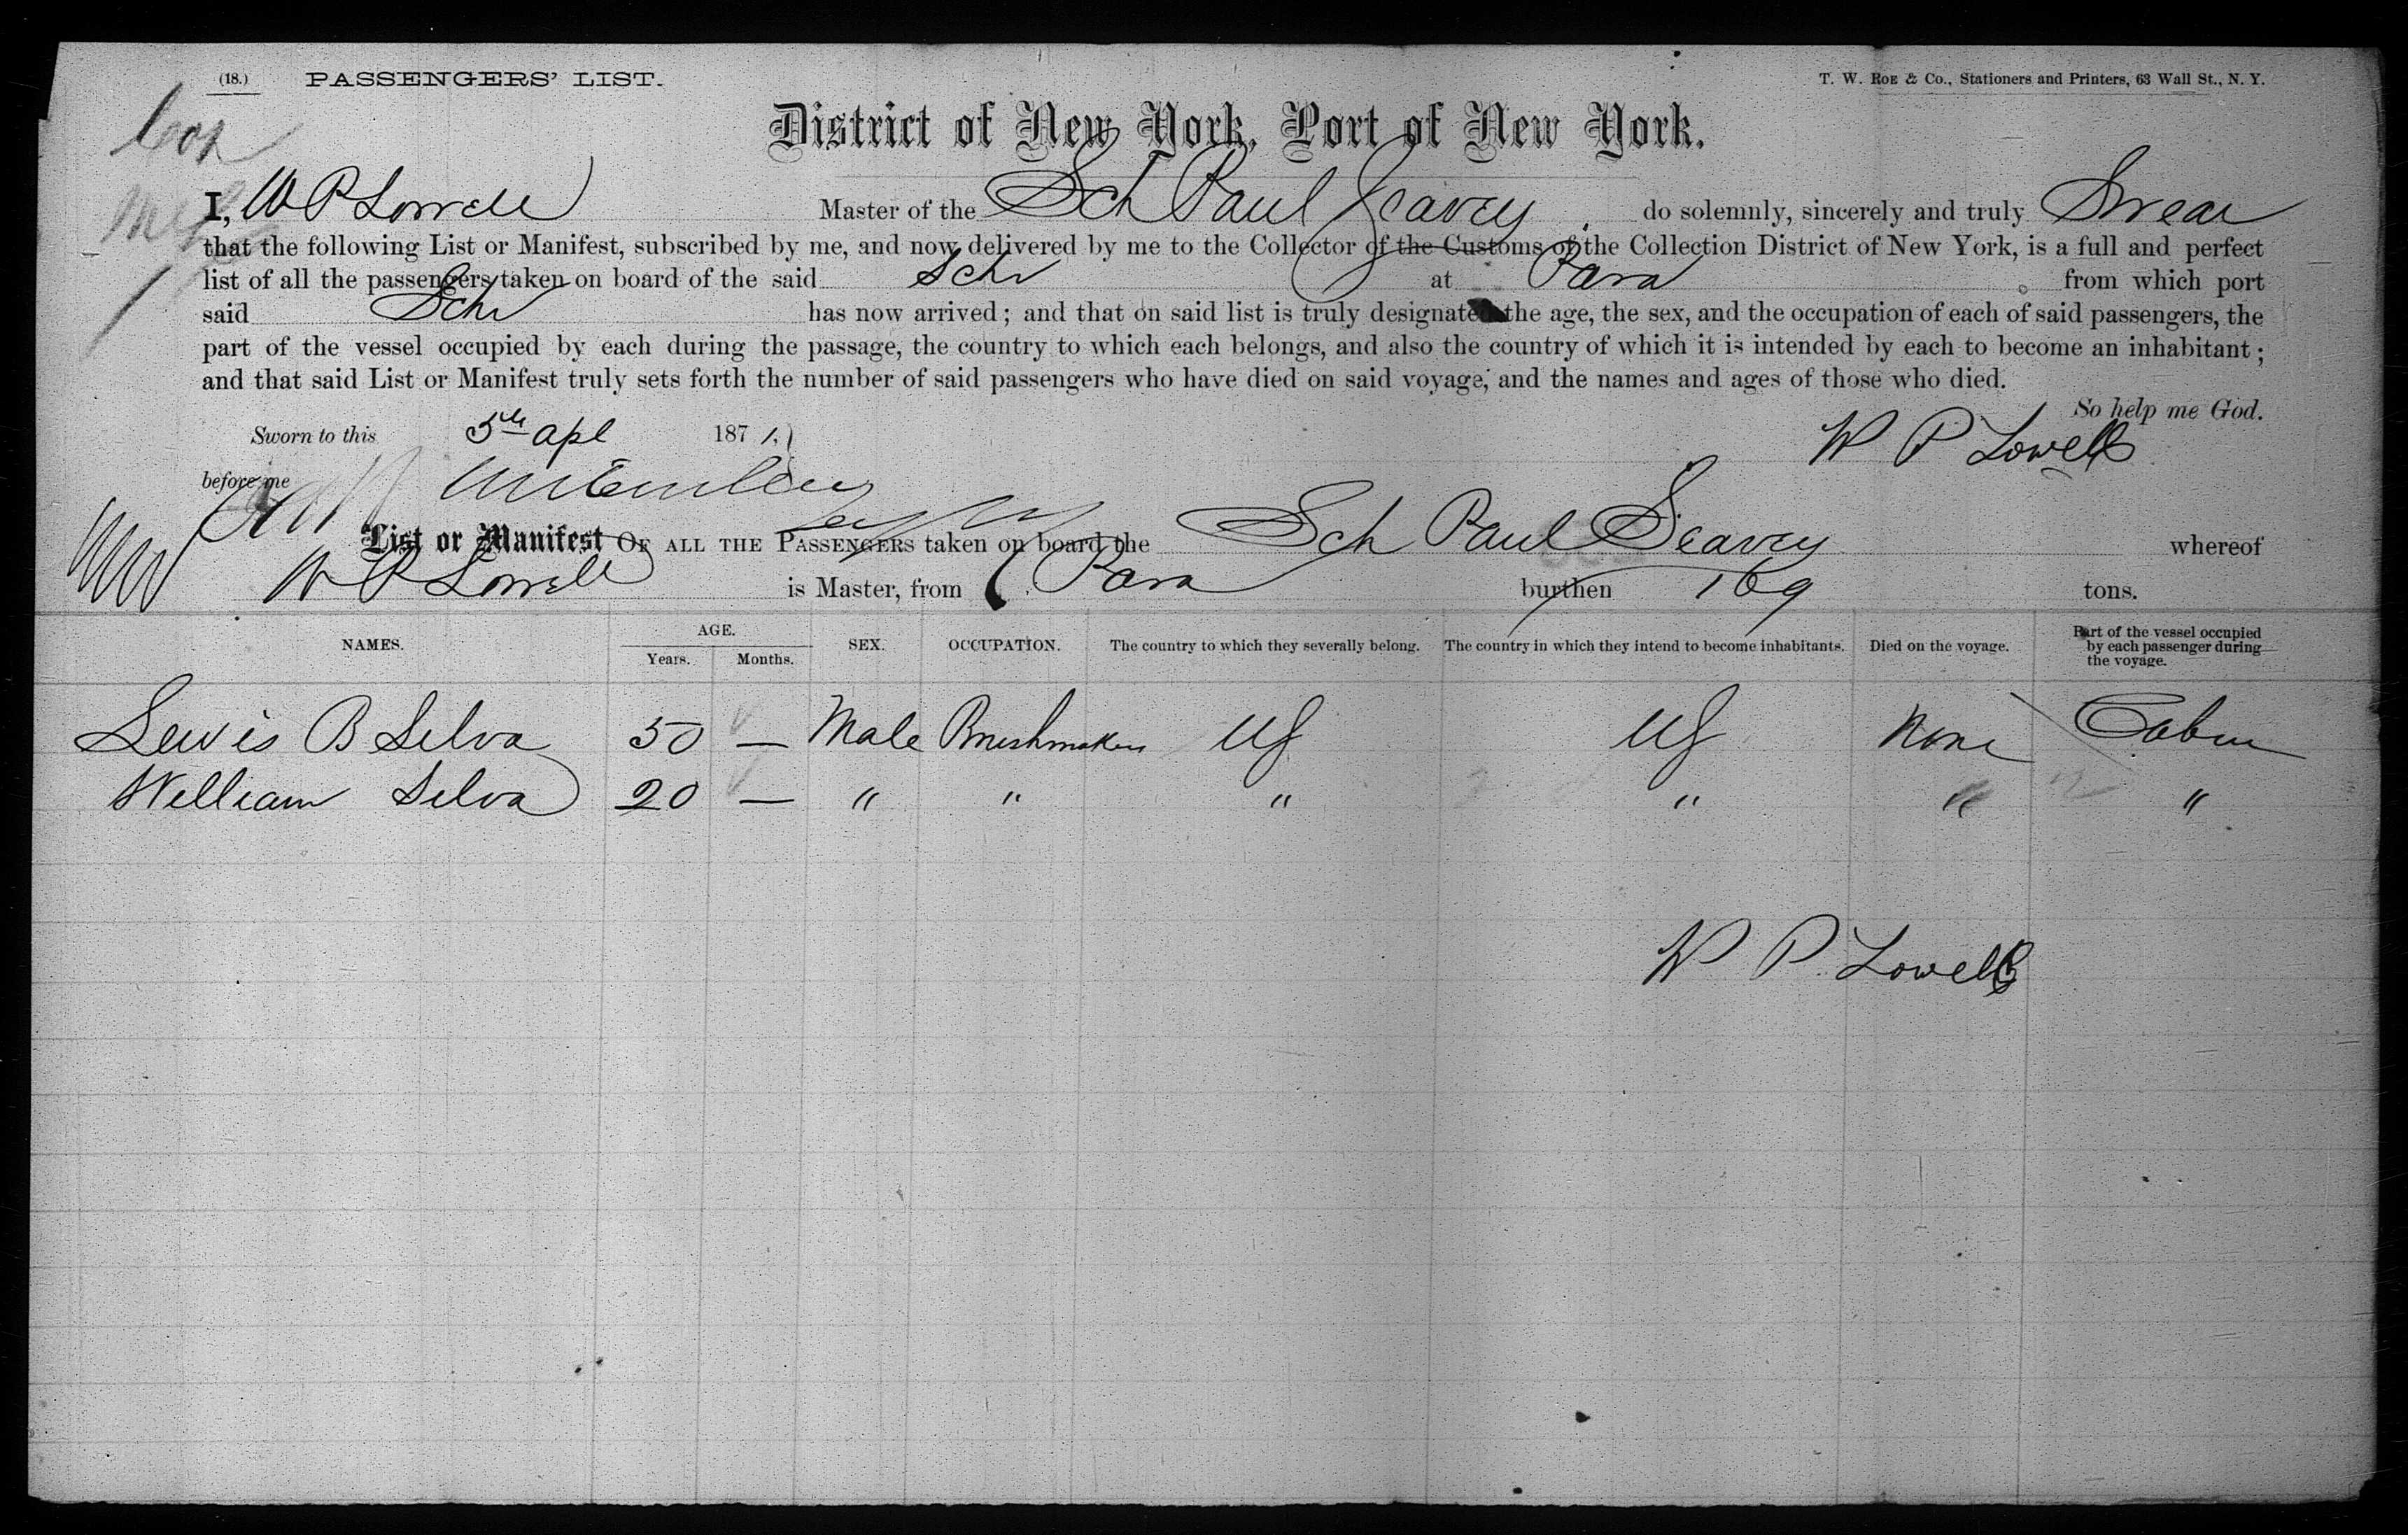 (18.) PASSENGERS' LIST. T. W. ROE & Co., Stationers and Printers, 63 Wall St., N. Y.
District of New York, Port of New York.
I, W P Lowell Master of the Sch Paul Seavey do solemnly, sincerely and truly Swear
that the following List or Manifest, subscribed by me, and now delivered by me to the Collector of the Customs of the Collection District of New York, is a full and perfect
list of all the passengers taken on board of the said Schr at Para from which port
said Schr has now arrived; and that on said list is truly designated the age, the sex, and the occupation of each of said passengers, the
part of the vessel occupied by each during the passage, the country to which each belongs, and also the country of which it is intended by each to become an inhabitant;
and that said List or Manifest truly sets forth the number of said passengers who have died on said voyage, and the names and ages of those who died.
So help me God.
Sworn to this 5th Apl 1871, W P Lowell
before me
List or Manifest OF ALL THE PASSENGERS taken on board the Sch Paul Seavey whereof
W P Lowell is Master, from Para burthen 169 tons.
NAMES. AGE. Years. Months. SEX. OCCUPATION. The country to which they severally belong. The country in which they intend to become inhabitants. Died on the voyage. Part of the vessel occupied by each passenger during the voyage.
Lewis B Silva 50 — Male Brushmaker US US None Cabin
William Silva 20 — " " " " " "
W P Lowell